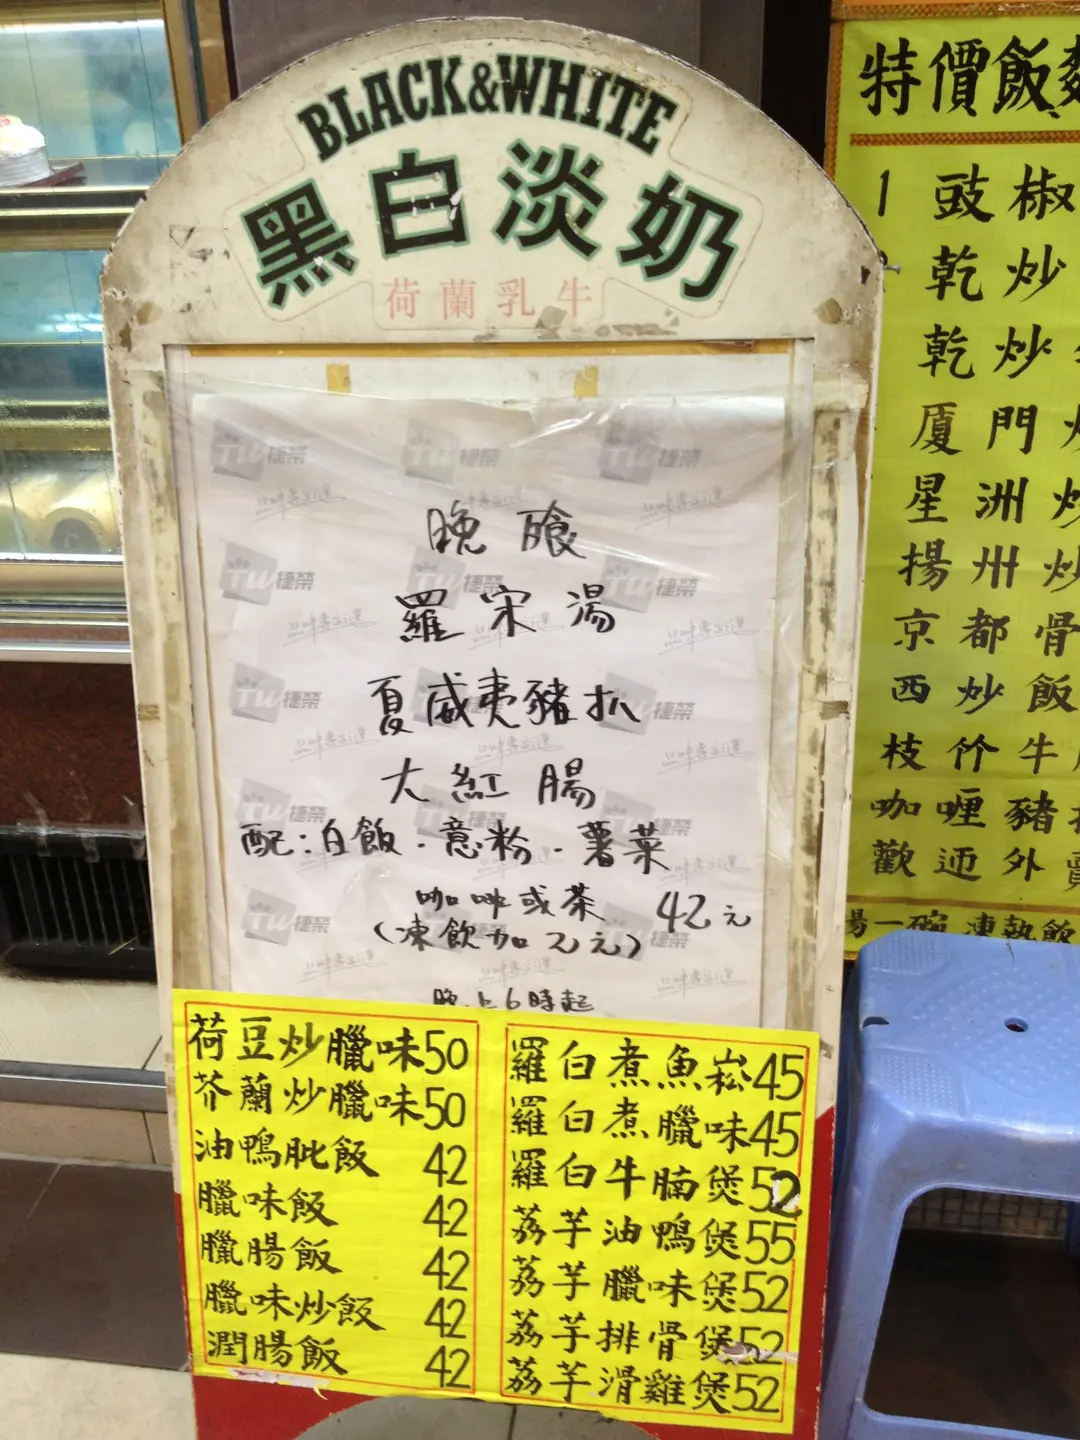 BLACK&WHITE
黑白淡奶
荷蘭乳牛
TW捷榮
晚飱
羅宋湯
夏威夷豬扒
大紅腸
配:白飯.意粉.薯菜
咖啡或茶 42元
(凍飲加2元)
晚上6時起
荷豆炒臘味50
芥蘭炒臘味50
油鴨肶飯 42
臘味飯 42
臘腸飯 42
臘味炒飯 42
潤腸飯 42
羅白煮魚崧45
羅白煮臘味45
羅白牛腩煲52
荔芋油鴨煲55
荔芋臘味煲52
荔芋排骨煲52
荔芋滑雞煲52
特價飯
1 豉椒
乾炒
乾炒
廈門
星洲
揚州
京都骨
西炒飯
枝竹牛
咖喱豬
歡迎外賣
湯一碗 凍熱飲